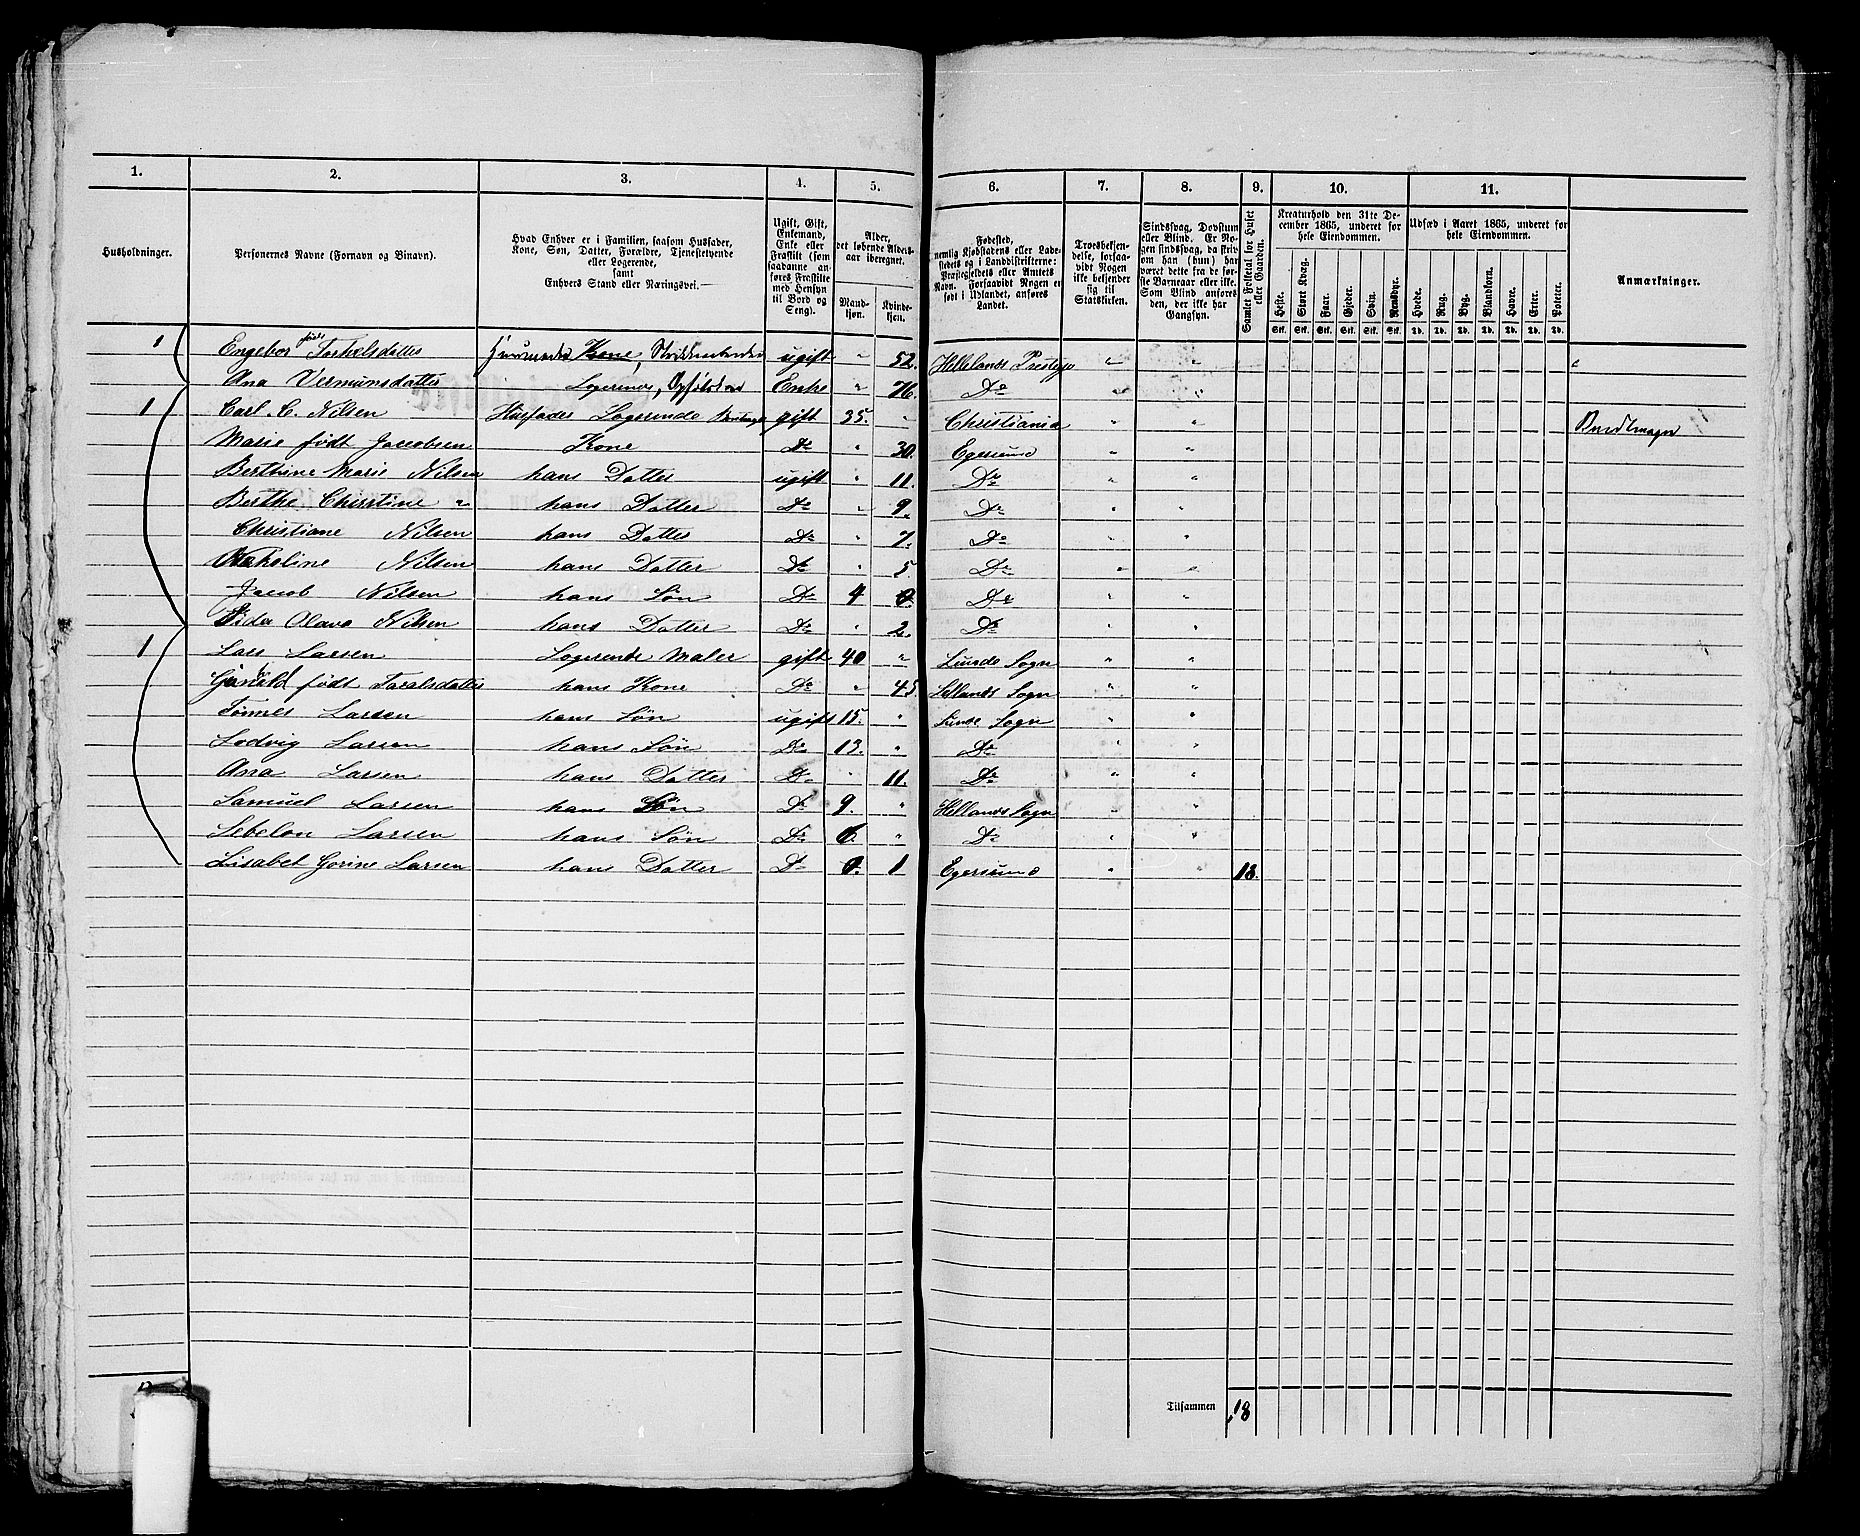 1. 2. 3. 4. 5. 6. 7. 8. 9. 10. 11.
Husholdninger.
Personernes Navne (Fornavn og Binavn).
Hvad Enhver er i Familien, saasom Husfader,
Kone, Søn, Datter, Forældre, Tjenestetyende
eller Logerende,
samt
Enhvers Stand eller Næringsvei.—
Ugift, Gift,
Enkemand,
Enke eller
Fraskilt (som
saadanne an-
føres Fraskilte
med Hensyn
til Bord og
Seng).
Alder,
det løbende Alders-
aar iberegnet.
Mand-
kjøn.
Kvinde-
kjøn.
Fødested,
nemlig Kjøbstadens eller Lade-
stedets og i Landdistrikterne:
Præstegjeldets eller Amtets
Navn. Forsaavidt Nogen er
født i Udlandet, anføres
Landet.
Troesbekjen-
delse, forsaa-
vidt Nogen
ikke bekjender
sig til
Statskirken.
Sindssvag, Døvstum
eller Blind. Er No-
gen sindssvag, da skriv
om han (hun) har
været dette fra de før-
ste Barneaar eller ikke.
Som Blind anføres
den, der ikke har
Gangsyn.
Samlet Folketal for Huset
eller Gaarden.
Kreaturhold den 31te De-
cember 1865, underet for
hele Eiendommen.
Heste. Stort Kvæg. Faar. Gjeder. Svin. Rensdyr.
Stk. Stk. Stk. Stk. Stk. Stk.
Udsæd i Aaret 1865, underet for
hele Eiendommen.
Hvede. Rug. Byg. Blandkorn. Havre. Erter. Poteter.
Td. Td. Td. Td. Td. Td. Td.
Anmærkninger.
1 Engebor født Torkelsdatter Kone, ugift " 52. " " "
Ana Vermunsdatter Logerende, Enke " 76. Do " "
1 Carl C. Nilsen Husfader Logerende gift 35. " Christiania " "
Marie født Jacobsen Kone Do " 30. Egersund " "
Berthine Marie Nilsen hans Datter ugift " 11. Do " "
Berthe Christine " hans Datter Do " 9. Do " "
Christiane Nilsen hans Datter Do " 7. Do " "
Nilsen hans Datter Do " 5. Do " "
Jacob Nilsen hans Søn Do 4 0. Do " "
Olava Nilsen hans Datter Do " 2. Do " "
1 Lars Larsen Logerende Maler gift 40 " Lunde Sogn " "
født hans Kone Do " 45. Sogn " "
Tønnes Larsen hans Søn ugift 15. " Lunde Sogn " "
Lodvig Larsen hans Søn Do 13. " Do " "
Ana Larsen hans Datter Do " 11. Do " "
Samuel Larsen hans Søn Do 9. " Hellands Sogn " "
Sebelon Larsen hans Søn Do 6. " Do " "
Lisabet Gorine Larsen hans Datter Do 0. 1 Egersund " " 18.
Tilsammen 18